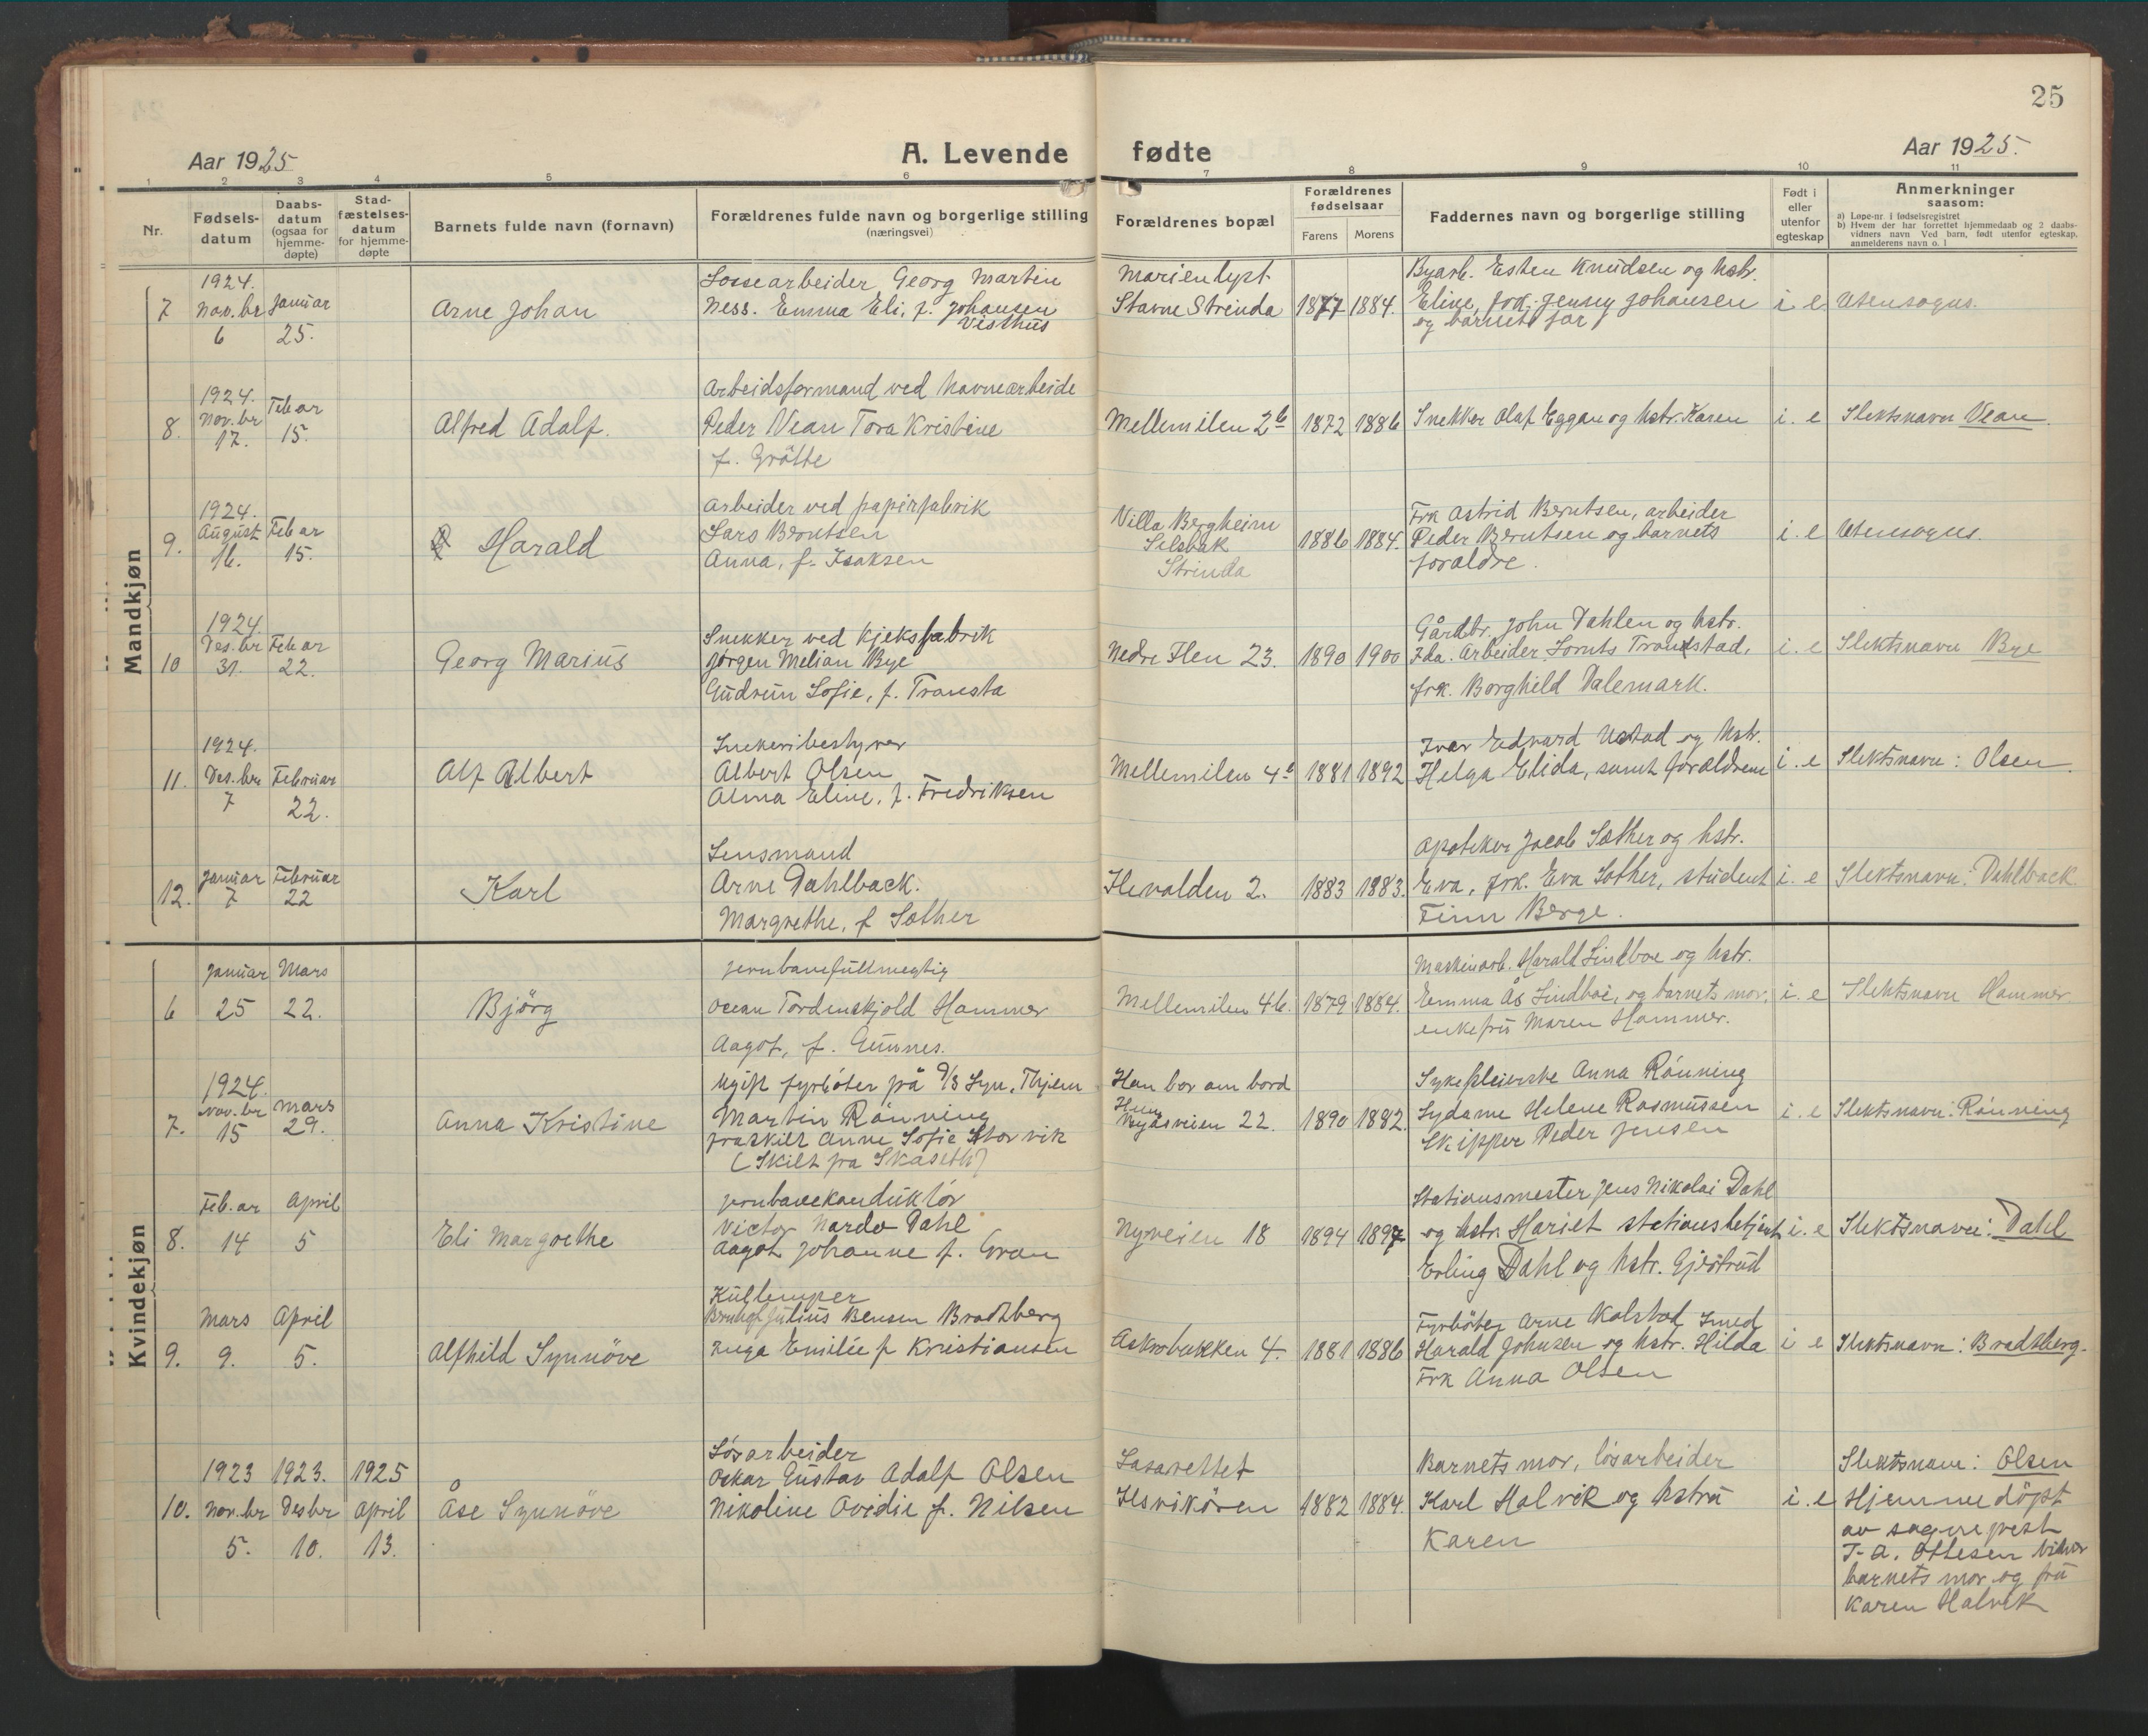 25
Aar 1925
A. Levende fødte
Aar 1925.
1 2 3 4 5 6 7 8 9 10 11
Nr.
Fødsels-
datum
Daabs-
datum
(ogsaa for
hjemme-
døpte)
Stad-
fæstelses-
datum
for hjemme-
døpte
Barnets fulde navn (fornavn)
Forældrenes fulde navn og borgerlige stilling
(næringsvei)
Forældrenes bopæl
Forældrenes
fødselsaar
Farens Morens
Faddernes navn og borgerlige stilling
Født i
eller
utenfor
egteskap
Anmerkninger
saasom:
a) Løpe-nr. i fødselsregistret
b) Hvem der har forrettet hjemmedaab og 2 daabs-
vidners navn Ved barn, født utenfor egteskap,
anmelderens navn o. l
Mandkjøn
7
1924.
Nov.br
6
Januar
25.
Arne Johan
Lossearbeider, Georg Martin
Ness. Emma Eli, f. Johansen
Visthus
Marienlyst
Stavne Strinda
1877 1884.
Byarb. Esten Knudsen og hstr.
Eline, frk. Jensey Johansen
og barnets far
i e
Utensogns.
8.
1924.
Nov.br
17.
Feb ar
15.
Alfred Adolf.
Arbeidsformand ved havnearbeide
Peder Vean Tora Kristine
f. Grötte
Mellemilen 2b
1872 1886
Snekker Olaf Eggan og hstr. Karen
i. e
Slektsnavn Vean.
9.
1924.
August
16.
Feb ar
15.
Harald
Arbeider ved papirfabrik
Lars Berntsen
Anna, f. Isaksen
Villa Bergheim
Selsbak
Strinda
1886 1884.
Frk Astrid Berntsen, arbeider
Peder Berntsen og barnets
foraldre.
i. e
Utensogns.
10
1924
Des.br
31.
Feb ar
22.
Georg Marius
Snekker ved kjeksfabrik
Jørgen Melian Bye
Gudrun Sofie, f. Transta
Nedre Ilen 23.
1890 1900
Gårdbr. John Dahlen og hstr.
Ida. Arbeider Lornts Transtad,
frk. Borghild Dalemark.
i. e
Slektsnavn Bye
11.
1924.
Des.br
7
Februar
22.
Alf Albert
Snekeribestyrer
Albert Olsen
Alma Eline, f. Fredriksen
Mellemilen 4b
1881 1892
Ivar Edvard Ustad og hstr.
Helga Elida, samt foraldrene
i. e
Slektsnavn: Olsen.
12.
Januar
7
Februar
22
Karl
Lensmand
Arne Dahlback.
Margrethe, f Sæther
Ilevolden 2.
1883 1883.
Apoteker Jacob Sæther og hstr.
Eva, frk. Eva Sæther, student
Finn Berge.
i. e
Slektsnavn: Dahlback.
Kvindekjøn
6
Januar
25
Mars
22.
Björg
Jernbanefullmegtig
Ocean Tordenskjold Hammer
Aagot, f. Gunnes.
Mellemilen 4b.
1879 1884.
Maskinarb. Harald Lindboe og hstr.
Emma Ås Lindboe, og barnets mor,
enkefru Maren Hammer.
i. e
Slektsnavn Hammer
7.
1924.
Nov.br
15
Mars
29.
Anna Kristine
Ugift fyrböter på D/S Lyn. Thjem
Martin Rönning
fraskilt Anne Sofie Storvik
(Skilt fra Skaseth)
Han bor om bord
Hun
Mydsveien 22.
1890 1882.
Sykepleierske Anna Rönning
Sydame Helene Rasmussen
Skipper Peder Jensen
i. e
Slektsnavn: Rönning
8.
Feb.ar
14
April
5
Eli Margrethe
Jernbanekonduktör
Victor Nardo Dahl
Aagot Johanne f. Gran
Nyveien 18
1894 1897
Stationsmester Jens Nikolai Dahl
og hstr. Hariet stationsbetjent
Erling Dahl og hstr. Gjertrud
i. e
Slektsnavn: Dahl
9.
Mars
9.
April
5.
Alfhild Synnöve
Kullemper
Julius Bensen Bradtberg
Inga Emilie f Kristiansen
Askrobakken 4.
1881 1886
Fyrböter Arne Kolstad Smed
Harald Johnsen og hstr. Hilda
Frk Anna Olsen
i e
Slektsnavn: Bradtberg.
10.
1923
Nov.br
5.
1923.
Desbr
10.
1925
April
13.
Åse Synnöve
Lösarbeider
Oskar Gustav Adolf Olsen
Nikoline Ovidie f. Nilsen
Lasarettet
Ilsvikören
1882 1884.
Barnets mor, lösarbeider
Karl Halvik og hstru
Karen
i. e
Slektsnavn: Olsen
Hjemmedöpt
av sogneprest
T. A. Ottesen
barnets mor og fru
Karen Halvik